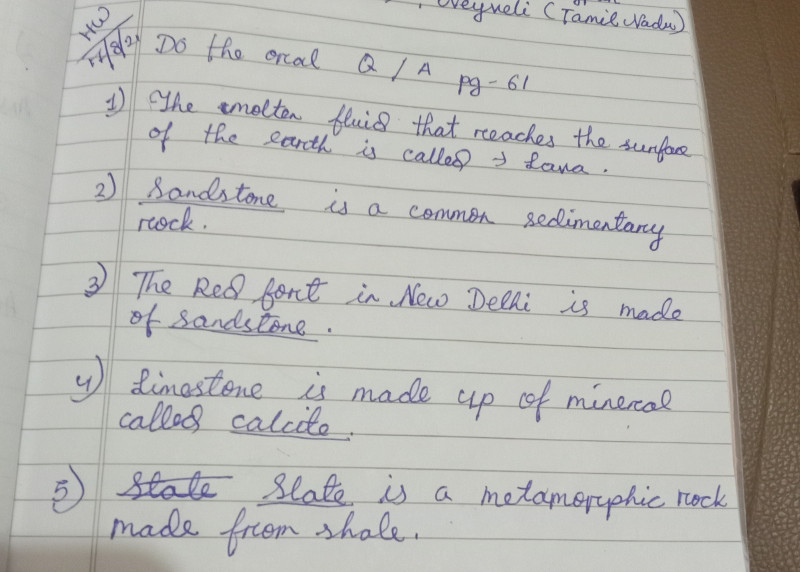 Neyveli (Tamil Nadu)
HW
17/8/21
Do the oral Q/A pg-61
1) The molten fluid that reaches the surface
of the earth is called → Lava.
2) Sandstone is a common sedimentary
rock.
3) The Red fort in New Delhi is made
of sandstone.
4) Limestone is made up of mineral
called calcite.
5) State Slate is a metamorphic rock
made from shale.